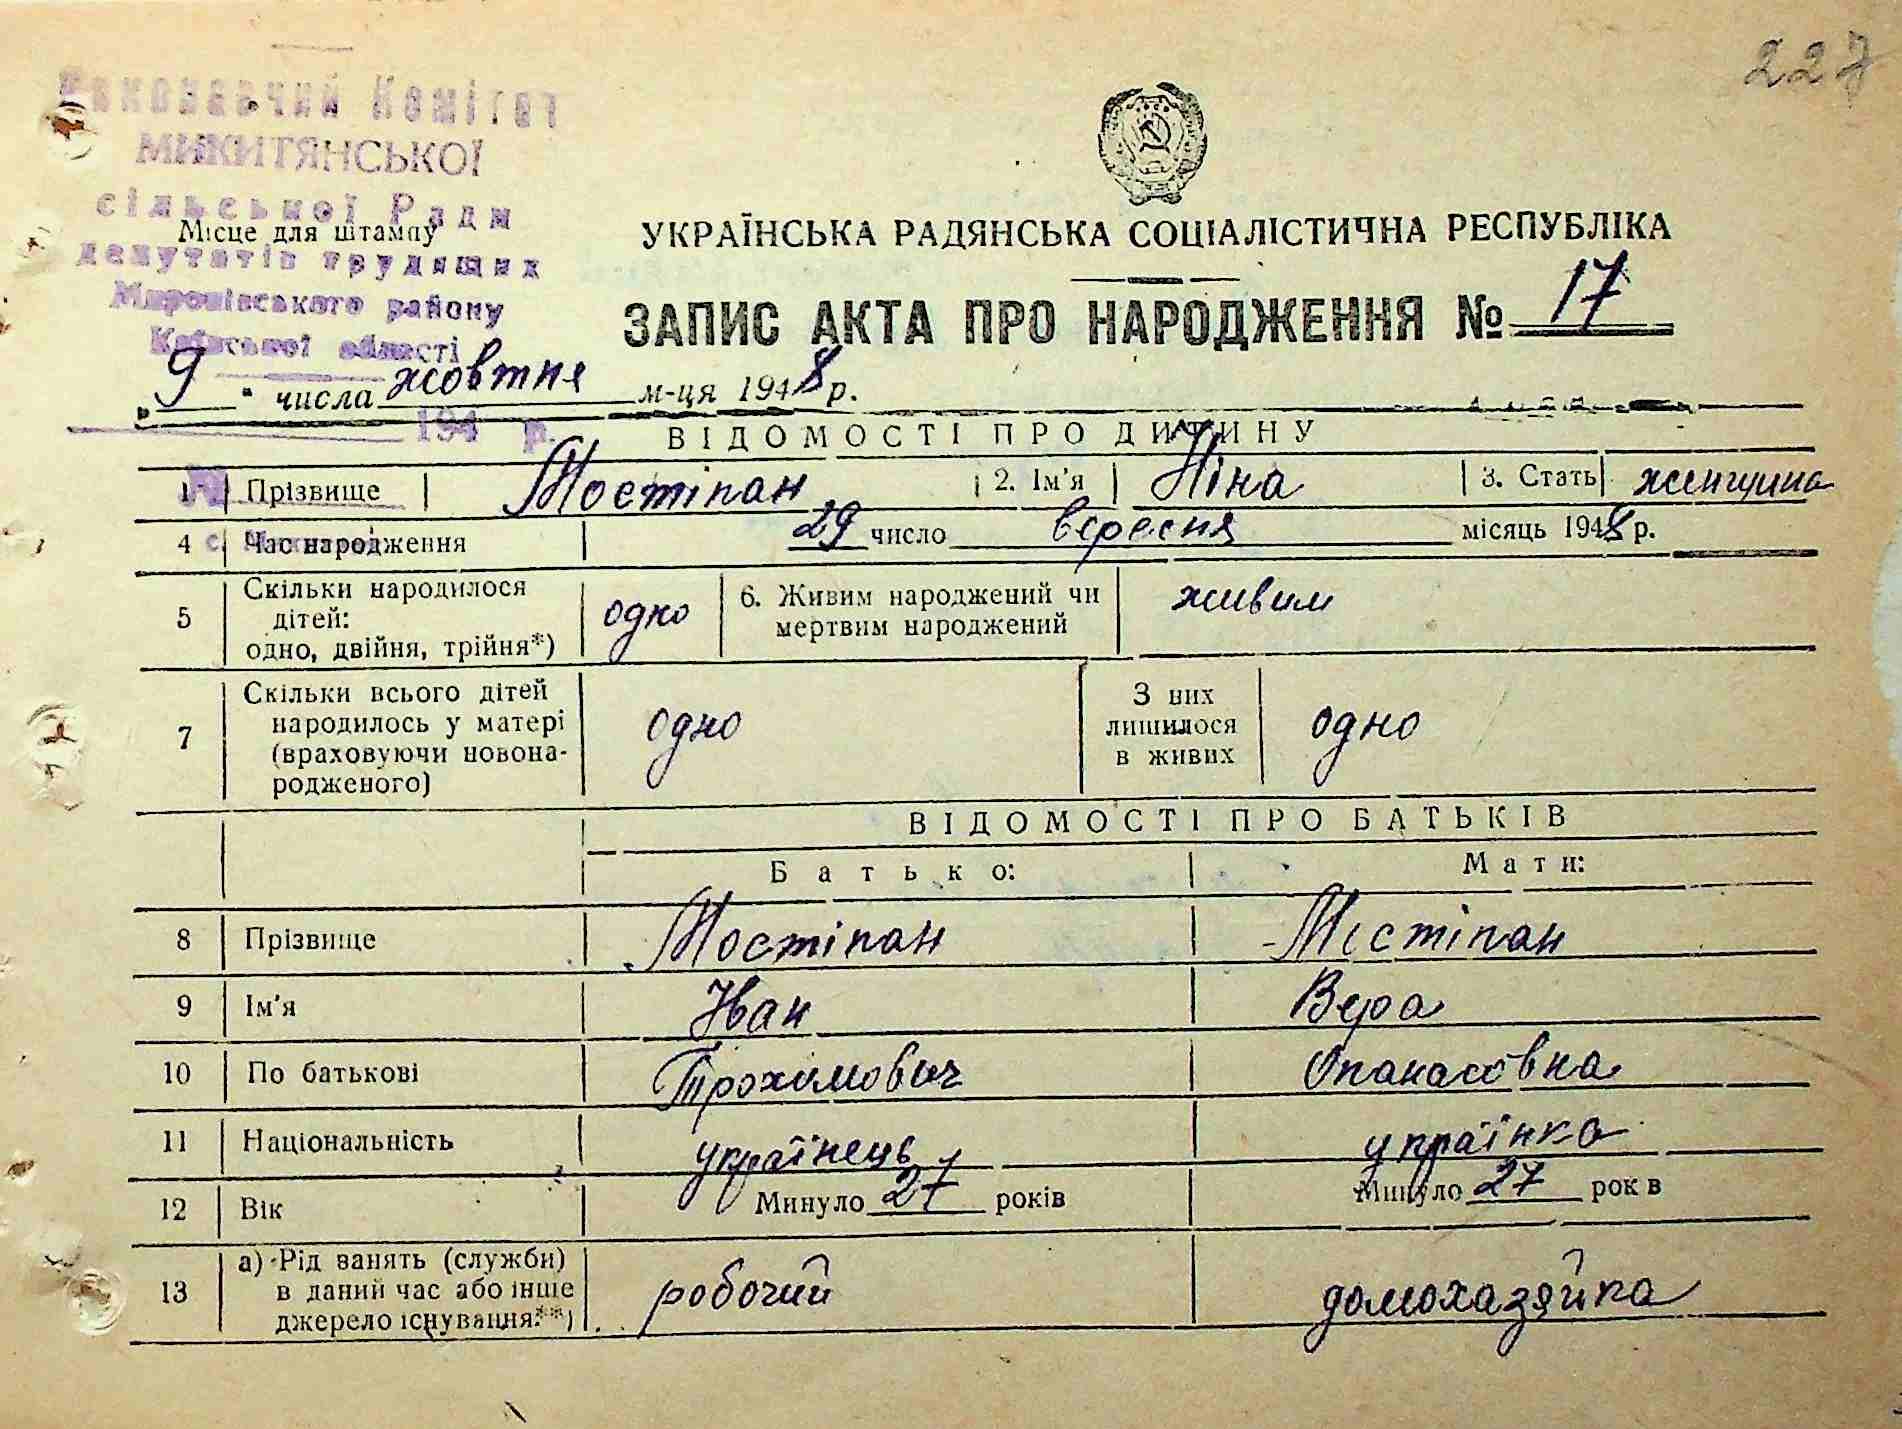 227
Виконавчий Комітет
МИКИТЯНСЬКОЇ
сільської Ради
Місце для штампу
депутатів трудящих
Миронівського району
Київської області
194 р.
УКРАЇНСЬКА РАДЯНСЬКА СОЦІАЛІСТИЧНА РЕСПУБЛІКА
ЗАПИС АКТА ПРО НАРОДЖЕННЯ № 17
„9“ числа жовтня м-ця 1948 р.
ВІДОМОСТІ ПРО ДИТИНУ
1 Прізвище Мостіпан 2. Ім'я Ніна 3. Стать женщина
4 Час народження 29 число вересня місяць 1948 р.
5 Скільки народилося дітей: одно, двійня, трійня*) одно 6. Живим народжений чи мертвим народжений живим
7 Скільки всього дітей народилось у матері (враховуючи новона-родженого) одно З них лишилося в живих одно
ВІДОМОСТІ ПРО БАТЬКІВ
Батько: Мати:
8 Прізвище Мостіпан Мостіпан
9 Ім'я Іван Вера
10 По батькові Трохимович Опанасовна
11 Національність українець українка
12 Вік Минуло 27 років Минуло 27 рок в
13 а) Рід занять (служби) в даний час або інше джерело існування:**) робочий домохазяйка